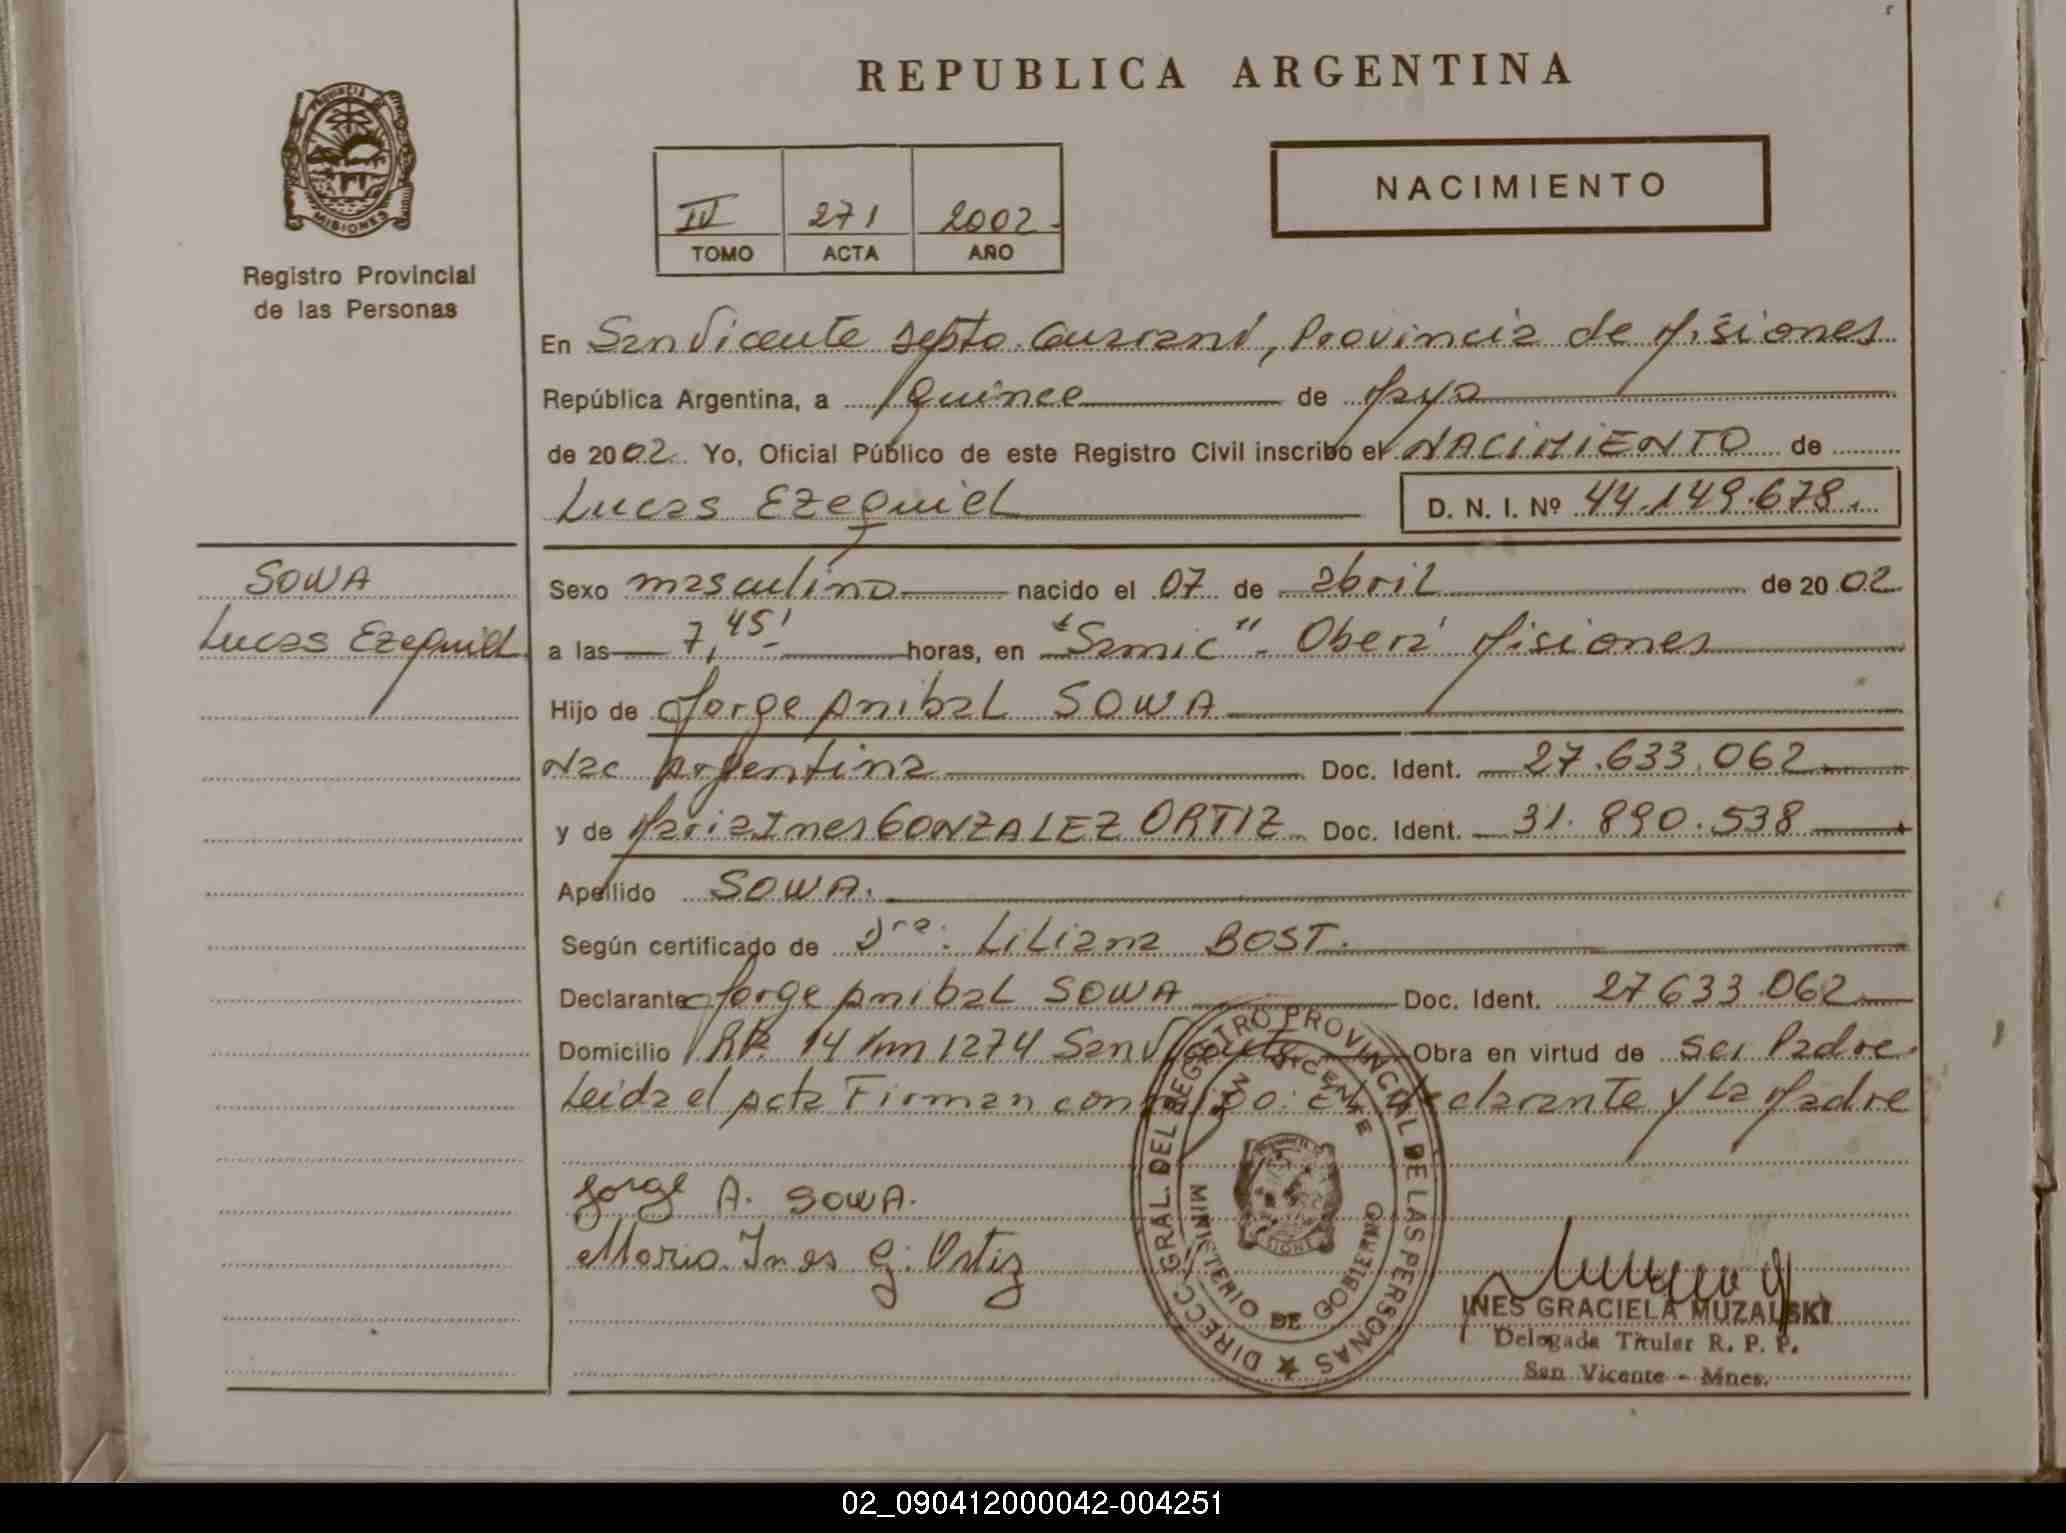 REPUBLICA ARGENTINA
PROVINCIA DE
MISIONES
Registro Provincial
de las Personas
IV 271 2002
TOMO ACTA AÑO
NACIMIENTO
En San Vicente Depto. Guaraní, Provincia de Misiones
República Argentina, a quince de Mayo
de 2002. Yo, Oficial Público de este Registro Civil inscribo el NACIMIENTO de
Lucas Ezequiel D. N. I. Nº 44.149.678.
SOWA
Lucas Ezequiel
Sexo masculino nacido el 07 de abril de 2002
a las 7,45' horas, en "Samic". Oberá Misiones
Hijo de Jorge Anibal SOWA
Nac Argentina Doc. Ident. 27.633.062
y de Maria Ines GONZALEZ ORTIZ Doc. Ident. 31.890.538
Apellido SOWA.
Según certificado de Dra. Liliana BOST.
Declarante Jorge Anibal SOWA Doc. Ident. 27633.062
Domicilio 14 Km 1274 San Vicente Obra en virtud de ser Padre.
Leida el Acta Firman conmigo: El declarante y La Madre
Jorge A. SOWA.
Maria Ines G. Ortiz
DIRECC. GRAL. DEL REGISTRO PROVINCIAL DE LAS PERSONAS
SAN VICENTE
MINISTERIO DE GOBIERNO
INES GRACIELA MUZALSKI
Delegada Titular R. P. P.
San Vicente - Mnes.
02_090412000042-004251